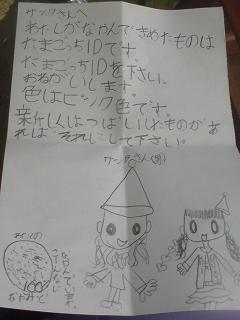 サンタさんへ
わたしがなやんできめたものは
たまごっちIDです。
たまごっちIDを下さい。
おねがいします。
色はピンク色です。
新しくはつばいしたものがあ
ればそれにして下さい。
サンタさん
わたしの
なやみで